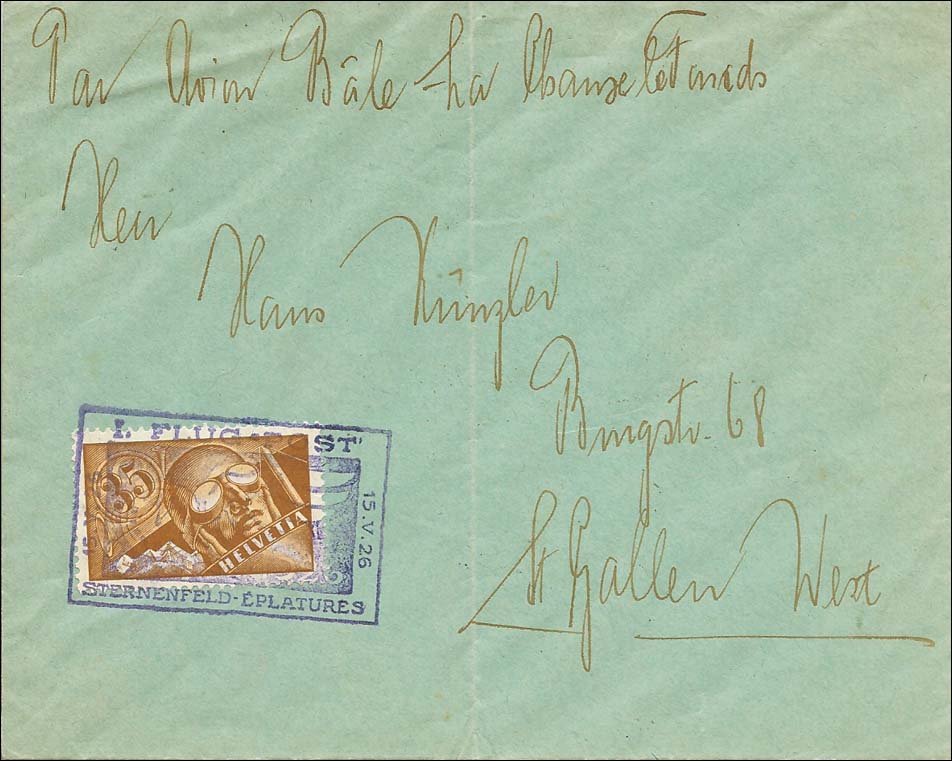 Par Avion Bâle - La Chaux de Fonds
Herr
Hans Künzler
Burgstr. 68
St Gallen West
I. FLUG ST
35
HELVETIA
15.V.26
STERNENFELD-ÉPLATURES